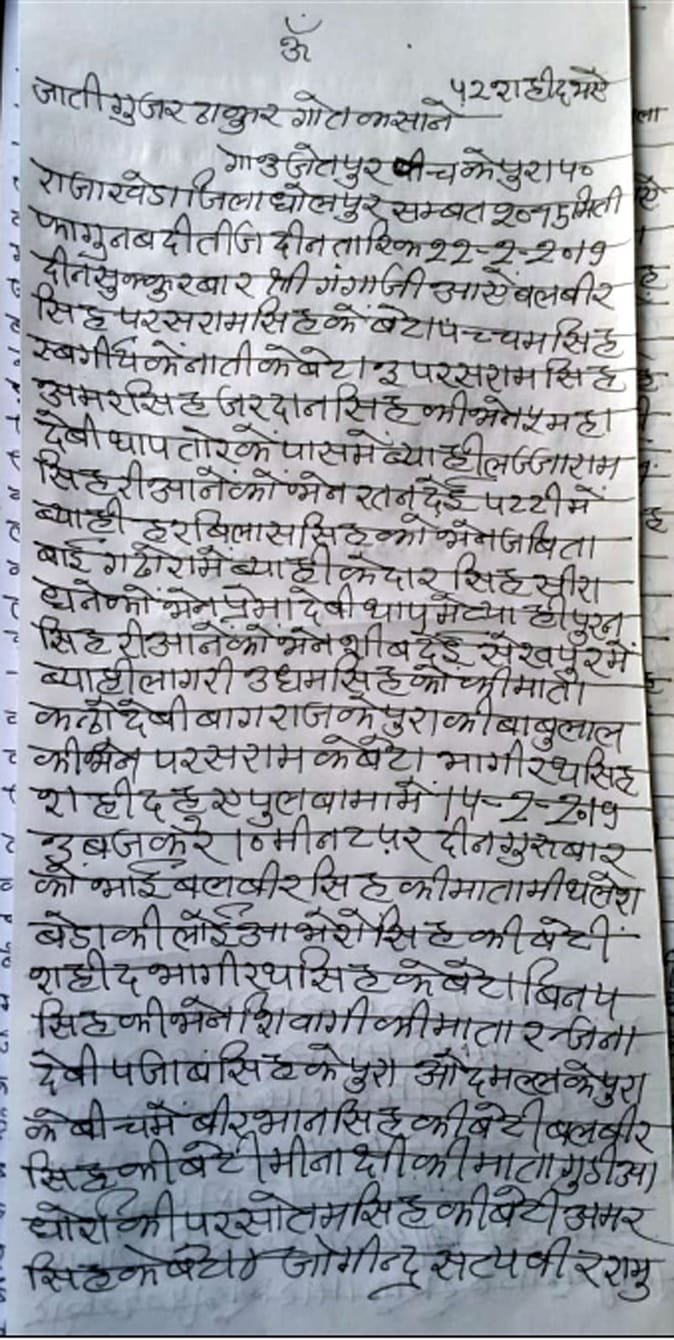 ॐ
५२ शहीद भऐ
जाती गुजर ठाकुर गोत कसाने
गाउ जेतपुर बीच के पुरा प०
राजाखेडा जिला धोलपुर सम्बत २०१५ मिती
फागुन बदी तीज दीन तारिक २२-२-२०१९
दीन सुक्कुरबार श्री गंगाजी आऐ बलबीर
सिह परसराम सिह के बेटा पच्चम सिह
स्बर्गीय के नाती के बेटा ३ परसराम सिह
अमर सिह जरदान सिह की भेन ४ महा
देबी थाप तोर के पास में ब्याही लज्जाराम
सिह रीआने को भेन रतन देई पटटी में
ब्याही हरबिलास सिह को भेन जबिता
बाई गढोरा में ब्याही केदार सिह खीरा
धने को भेन प्रेमा देबी थापु में ब्याही पुरन
सिह रीआने को भेन शीब देई सेखपुर में
ब्याही लागरी उधम सिह को की माता
कलो देबी बागराज के पुरा की बाबुलाल
की भेन परसराम के बेटा भागीरथ सिह
शहीद हुऐ पुलबामा में 14-2-2019
३ बजकर 10 मीनट पर दीन गुरुबार
को भाई बलबीर सिह की माता मीथलेश
बेडा की लोई आ भेरो सिह की बेटी
शहीद भागीरथ सिह के बेटा बिनय
सिह की भेन शिवागी की माता रन्जना
देबी पजाब सिह के पुरा ओंदमल्ल के पुरा
के बीच में बीरभान सिह की बेटी बलबीर
सिह की बेटी मीनाक्षी की माता गुडीआ
धोरा की परसोतम सिह की बेटी अमर
सिह के बेटा ४ जोगीन्द्र सत्यबीर रामु